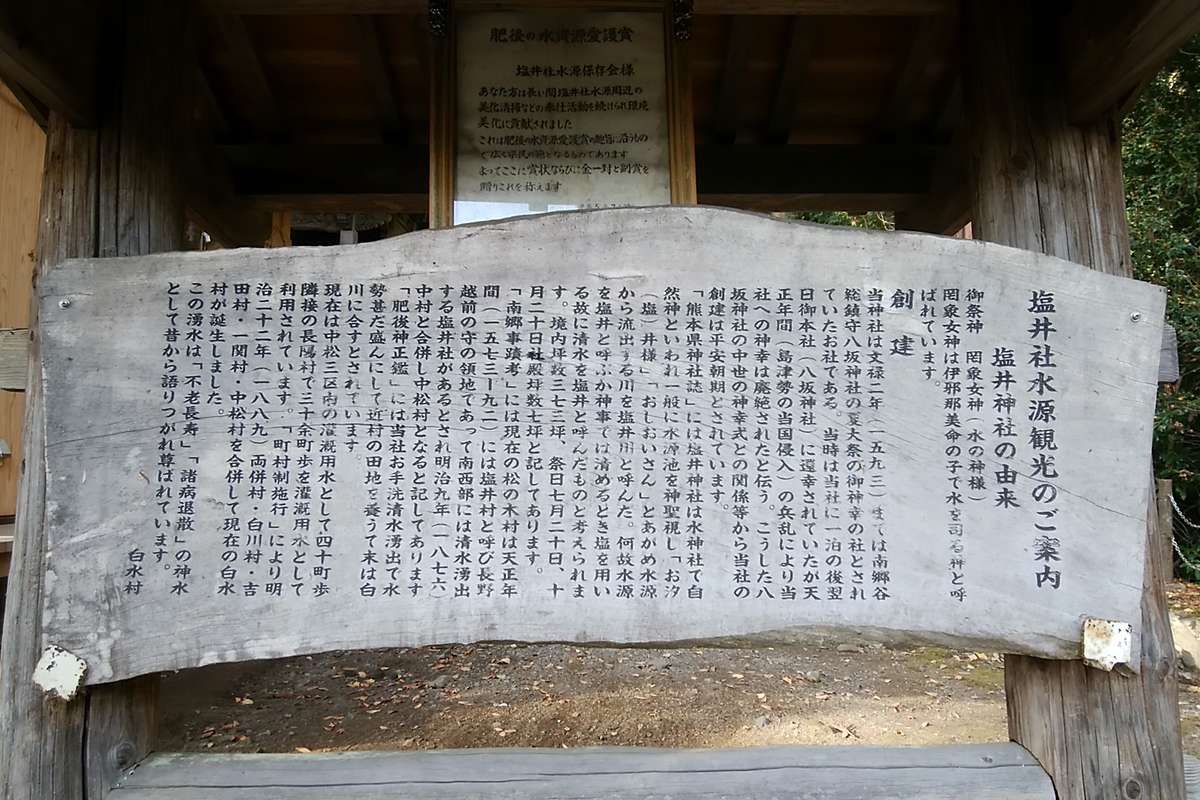 肥後の水資源愛護賞
塩井社水源保存会様
あなた方は長い間塩井社水源周辺の
美化清掃などの奉仕活動を続けられ環境
美化に貢献されました
これは肥後の水資源愛護賞の趣旨に沿うもの
で広く県民の範となるものであります
よってここに賞状ならびに金一封と副賞を
贈りこれを称えます
塩井社水源観光のご案内
塩井神社の由来
御祭神 罔象女神(水の神様)
罔象女神は伊邪那美命の子で水を司る神と呼
ばれています。
創建
当神社は文禄二年(一五九三)までは南郷谷
総鎮守八坂神社の夏大祭の御神幸の社とされ
ていたお社である。当時は当社に一泊の後翌
日御本社(八坂神社)に還幸されていたが天
正年間(島津勢の当国侵入)の兵乱により当
社への神幸は廃絶されたと伝う。こうした八
坂神社の中世の神幸式との関係等から当社の
創建は平安朝期とされています。
「熊本県神社誌」には塩井神社は水神社で自
然神といわれ一般に水源池を神聖視し「お汐
(塩)井様」「おしおいさん」とあがめ水源
から流出する川を塩井川と呼んだ。何故水源
を塩井と呼ぶか神事では清めるとき塩を用い
る故に清水を塩井と呼んだものと考えられま
す。境内坪数三七三坪、祭日七月二十日、十
月二十日社殿坪数七坪と記してあります。
「南郷事蹟考」には現在の松の木村は天正年
間(一五七三―九二)には塩井村と呼び長野
越前の守の領地であって南西部には清水湧出
する塩井社があるとされ明治九年(一八七六)
中村と合併し中松村となると記してあります
「肥後神正鑑」には当社お手洗清水湧出で水
勢甚だ盛んにして近村の田地を養うて末は白
川に合すとされています。
現在は中松三区内の灌漑用水として四十町歩
隣接の長陽村で三十余町歩を灌漑用水として
利用されています。「町村制施行」により明
治二十二年(一八八九)両併村・白川村・吉
田村・一関村・中松村を合併して現在の白水
村が誕生しました。
この湧水は「不老長寿」「諸病退散」の神水
として昔から語りつがれ尊ばれています。
白水村